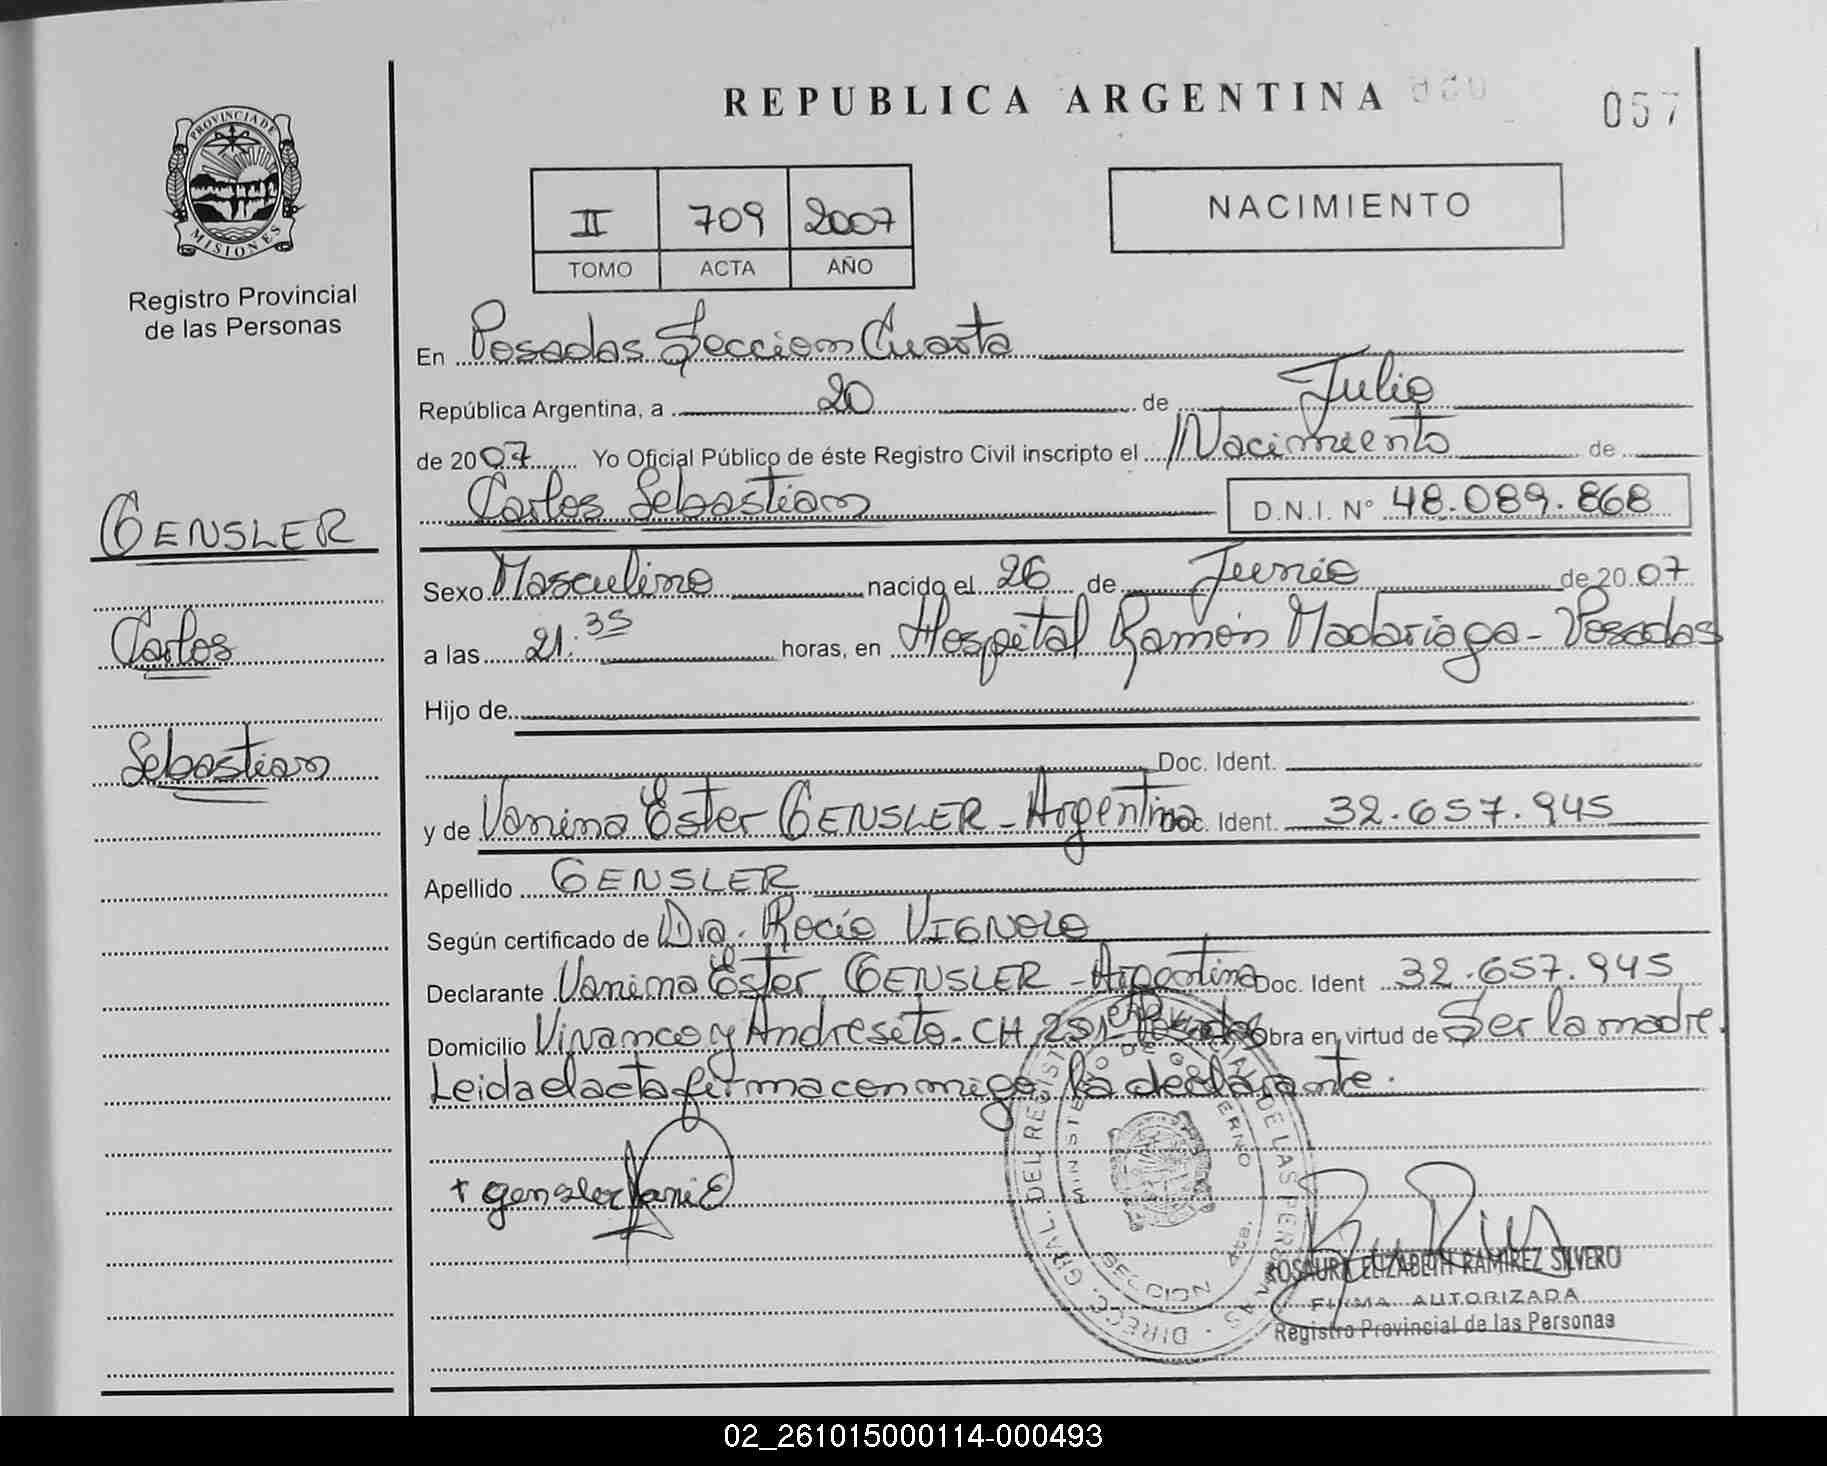 REPUBLICA ARGENTINA
057
PROVINCIA DE MISIONES
Registro Provincial
de las Personas
II 709 2007
TOMO ACTA AÑO
NACIMIENTO
En Posadas Seccion Cuarta
República Argentina, a 20 de Julio
de 2007 Yo Oficial Público de éste Registro Civil inscripto el Nacimiento de
Carlos Sebastian D.N.I. N° 48.089.868
GENSLER
Carlos
Sebastian
Sexo Masculino nacido el 26 de Junio de 2007
a las 21.35 horas, en Hospital Ramón Madariaga - Posadas
Hijo de
Doc. Ident.
y de Vanina Ester GENSLER - Argentina Doc. Ident. 32.657.945
Apellido GENSLER
Según certificado de Dra. Rocío VIGNOLO
Declarante Vanina Ester GENSLER - Argentina Doc. Ident 32.657.945
Domicilio Vivanco y Andreseto - CH 251 - Posadas Obra en virtud de Ser la madre.
Leida el acta firma conmigo, la declarante.
+ gensler Vani E
DIREC. GRAL. DEL REGIST. PROVINCIAL DE LAS PERSONAS
MINISTERIO DE GOBIERNO
SECCION 4ta.
ROSAURA ELIZABETH RAMIREZ SILVERO
FIRMA AUTORIZADA
Registro Provincial de las Personas
02_261015000114-000493